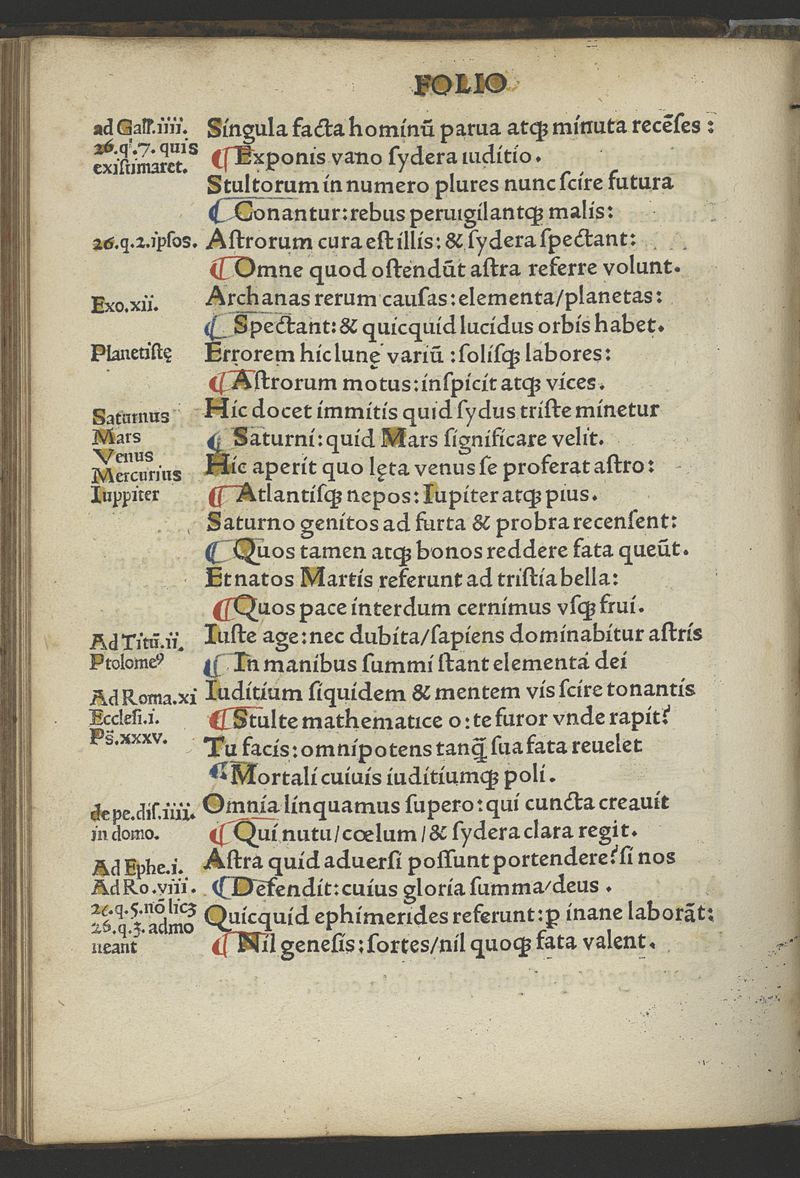 FOLIO
ad Gall.iiii.
26.q.7.quis
existimaret.
26.q.2.ipsos.
Exo.xii.
Planetistę
Saturnus
Mars
Venus
Mercurius
Iuppiter
Ad Titũ.ii.
Ptolomeꝰ
Ad Roma.xi
Ecclesi.i.
Ps̃.xxxv.
de pe.dis.iiii.
in domo.
Ad Ephe.i.
Ad Ro.viii.
26.q.5.nõ licꝫ
26.q.3.admo
neant
Singula facta hominũ parua atqꝫ minuta recẽses :
¶ Exponis vano sydera iuditio.
Stultorum in numero plures nunc scire futura
¶ Conantur: rebus peruigilantqꝫ malis:
Astrorum cura est illis: & sydera spectant:
¶ Omne quod ostendũt astra referre volunt.
Archanas rerum causas: elementa/planetas:
¶ Spectant: & quicquid lucidus orbis habet.
Errorem hic lunę variũ : solisqꝫ labores:
¶ Astrorum motus: inspicit atqꝫ vices.
Hic docet immitis quid sydus triste minetur
¶ Saturni: quid Mars significare velit.
Hic aperit quo lęta venus se proferat astro:
¶ Atlantisqꝫ nepos: Iupiter atqꝫ pius.
Saturno genitos ad furta & probra recensent:
¶ Quos tamen atqꝫ bonos reddere fata queũt.
Et natos Martis referunt ad tristia bella:
¶ Quos pace interdum cernimus vsqꝫ frui.
Iuste age: nec dubita/sapiens dominabitur astris
¶ In manibus summi stant elementa dei
Iuditium siquidem & mentem vis scire tonantis
¶ Stulte mathematice o: te furor vnde rapit?
Tu facis: omnipotens tanq̃ sua fata reuelet
¶ Mortali cuiuis iuditiumqꝫ poli.
Omnia linquamus supero: qui cuncta creauit
¶ Qui nutu/cœlum/& sydera clara regit.
Astra quid aduersi possunt portendere? si nos
¶ Defendit: cuius gloria summa/deus .
Quicquid ephimerides referunt: ꝓ inane laborãt:
¶ Nil genesis: sortes/nil quoqꝫ fata valent.